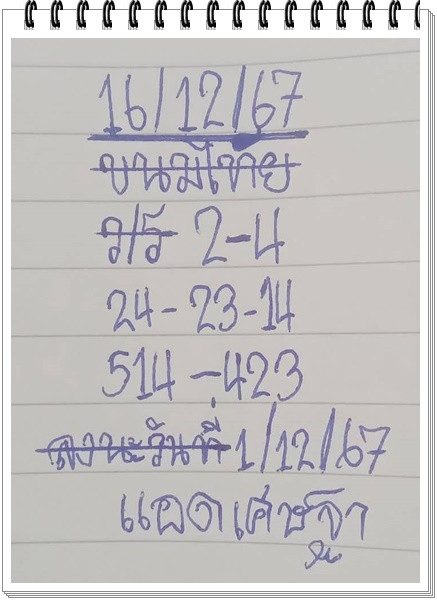 16/12/67
ขนมไทย
ว/ร 2-4
24-23-14
514-423
ลงนะวันที่ 1/12/67
แอดเศษฐา